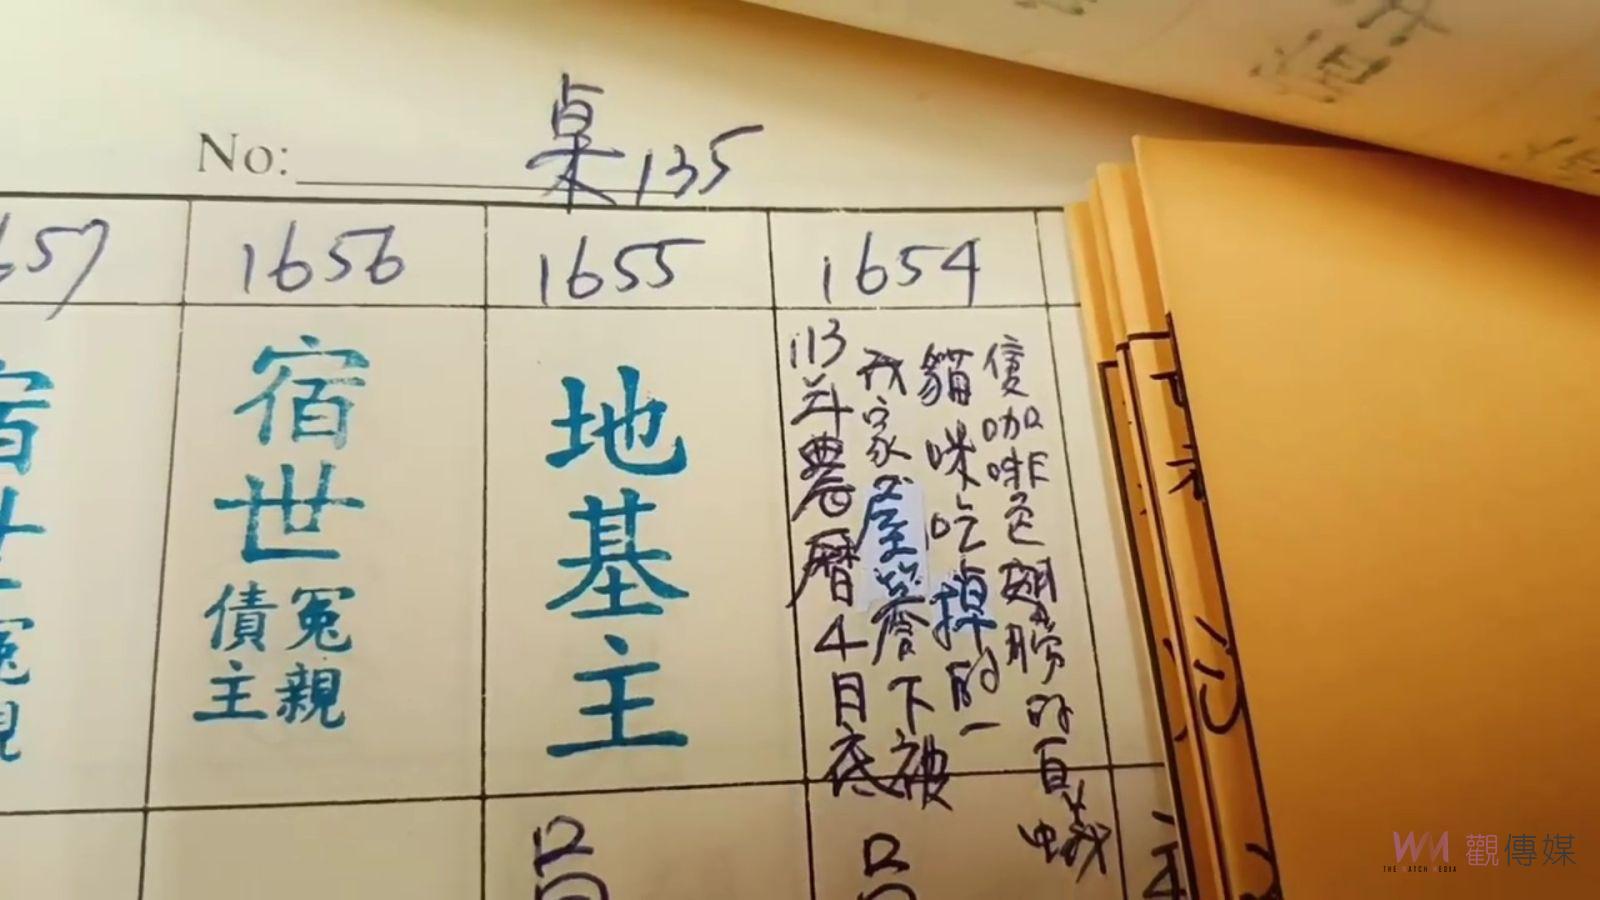 No: 桌135
1654
113年農曆4月底
我家屋簷下被
貓咪吃掉的一
隻咖啡色翅膀的白蟻
1655
地基主
1656
宿世
冤親
債主
657
觀傳媒
THE WATCH MEDIA